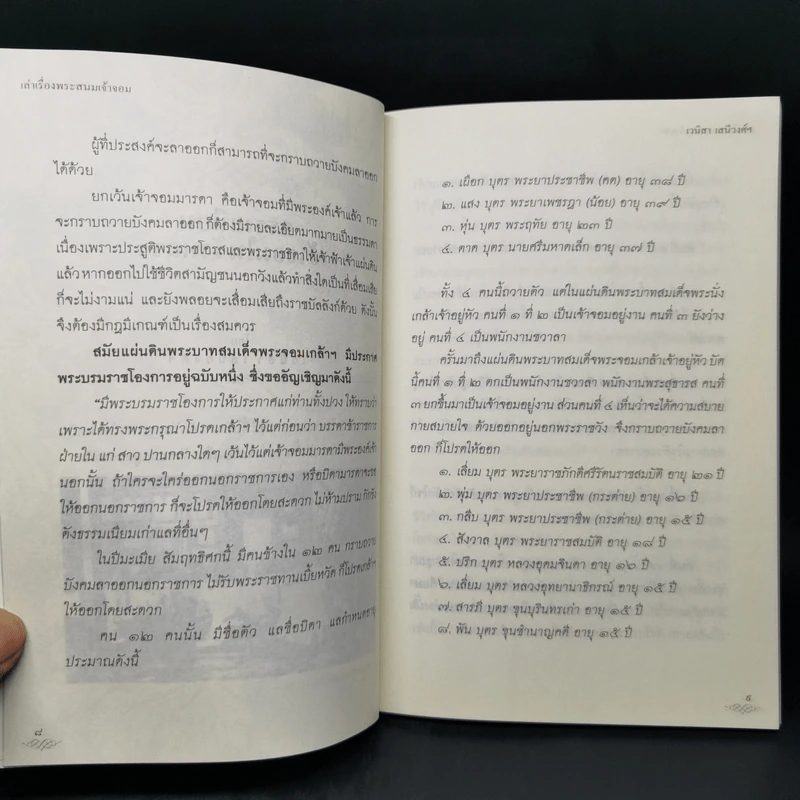 เล่าเรื่องพระสนมเจ้าจอม
ผู้ที่ประสงค์จะลาออกก็สามารถที่จะกราบถวายบังคมลาออก
ได้ด้วย
ยกเว้นเจ้าจอมมารดา คือเจ้าจอมที่มีพระองค์เจ้าแล้ว การ
จะกราบถวายบังคมลาออก ก็ต้องมีรายละเอียดมากมายเป็นธรรมดา
เนื่องเพราะประสูติพระราชโอรสและพระราชธิดาให้เจ้าฟ้าเจ้าแผ่นดิน
แล้ว หากออกไปใช้ชีวิตสามัญชนนอกวังแล้วทำสิ่งใดเป็นที่เสื่อมเสีย
ก็จะไม่งามแน่ และยังพลอยจะเสื่อมเสียถึงราชบัลลังก์ด้วย ดังนั้น
จึงต้องมีกฎมีเกณฑ์เป็นเรื่องสมควร
สมัยแผ่นดินพระบาทสมเด็จพระจอมเกล้าฯ มีประกาศ
พระบรมราชโองการอยู่ฉบับหนึ่ง ซึ่งขออัญเชิญมาดังนี้
“มีพระบรมราชโองการให้ประกาศแก่ท่านทั้งปวง ให้ทราบว่า
เพราะได้ทรงพระกรุณาโปรดเกล้าฯ ไว้แต่ก่อนว่า บรรดาข้าราชการ
ฝ่ายใน แก่ สาว ปานกลางใดๆ เว้นไว้แต่เจ้าจอมมารดามีพระองค์เจ้า
นอกนั้น ถ้าใครจะใคร่ออกนอกราชการเอง หรือบิดามารดาจะขอ
ให้ออกนอกราชการ ก็จะโปรดให้ออกโดยสะดวก ไม่ห้ามปราม กักขัง
ดังธรรมเนียมเก่าแลที่อื่นๆ
ในปีมะเมีย สัมฤทธิศกนี้ มีคนข้างใน ๑๒ คน กราบถวาย
บังคมลาออกนอกราชการ ไม่รับพระราชทานเบี้ยหวัด ก็โปรดเกล้าฯ
ให้ออกโดยสะดวก
คน ๑๒ คนนั้น มีชื่อตัว แลชื่อบิดา แลกำหนดอายุ
ประมาณดังนี้
๘
เวนิสา เสนีวงศ์ฯ
๑. เผือก บุตร พระยาประชาชีพ (คต) อายุ ๓๘ ปี
๒. แสง บุตร พระยาเพชรฎา (น้อย) อายุ ๓๙ ปี
๓. หุ่น บุตร พระฤทัย อายุ ๒๓ ปี
๔. ตาด บุตร นายศรีมหาดเล็ก อายุ ๓๗ ปี
ทั้ง ๔ คนนี้ถวายตัว แต่ในแผ่นดินพระบาทสมเด็จพระนั่ง
เกล้าเจ้าอยู่หัว คนที่ ๑ ที่ ๒ เป็นเจ้าจอมอยู่งาน คนที่ ๓ ยังว่าง
อยู่ คนที่ ๔ เป็นพนักงานชวาลา
ครั้นมาถึงแผ่นดินพระบาทสมเด็จพระจอมเกล้าเจ้าอยู่หัว บัด
นี้คนที่ ๑ ที่ ๒ ตกเป็นพนักงานชวาลา พนักงานพระสุธารส คนที่
๓ ยกขึ้นมาเป็นเจ้าจอมอยู่งาน ส่วนคนที่ ๔ เห็นว่าจะได้ความสบาย
กายสบายใจ ด้วยออกอยู่นอกพระราชวัง จึงกราบถวายบังคมลา
ออก ก็โปรดให้ออก
๑. เลี่ยม บุตร พระยาราชภักดีศรีรัตนราชสมบัติ อายุ ๒๑ ปี
๒. พุ่ม บุตร พระยาประชาชีพ (กระต่าย) อายุ ๑๖ ปี
๓. กลีบ บุตร พระยาประชาชีพ (กระต่าย) อายุ ๑๕ ปี
๔. สังวาล บุตร พระยาราชสมบัติ อายุ ๑๘ ปี
๕. ปริก บุตร หลวงอุดมจินดา อายุ ๑๖ ปี
๖. เลี่ยม บุตร หลวงอุทยานาธิกรณ์ อายุ ๑๕ ปี
๗. สารภี บุตร ขุนบุรินทรเก่า อายุ ๑๕ ปี
๘. พัน บุตร ขุนชำนาญคดี อายุ ๑๕ ปี
๙